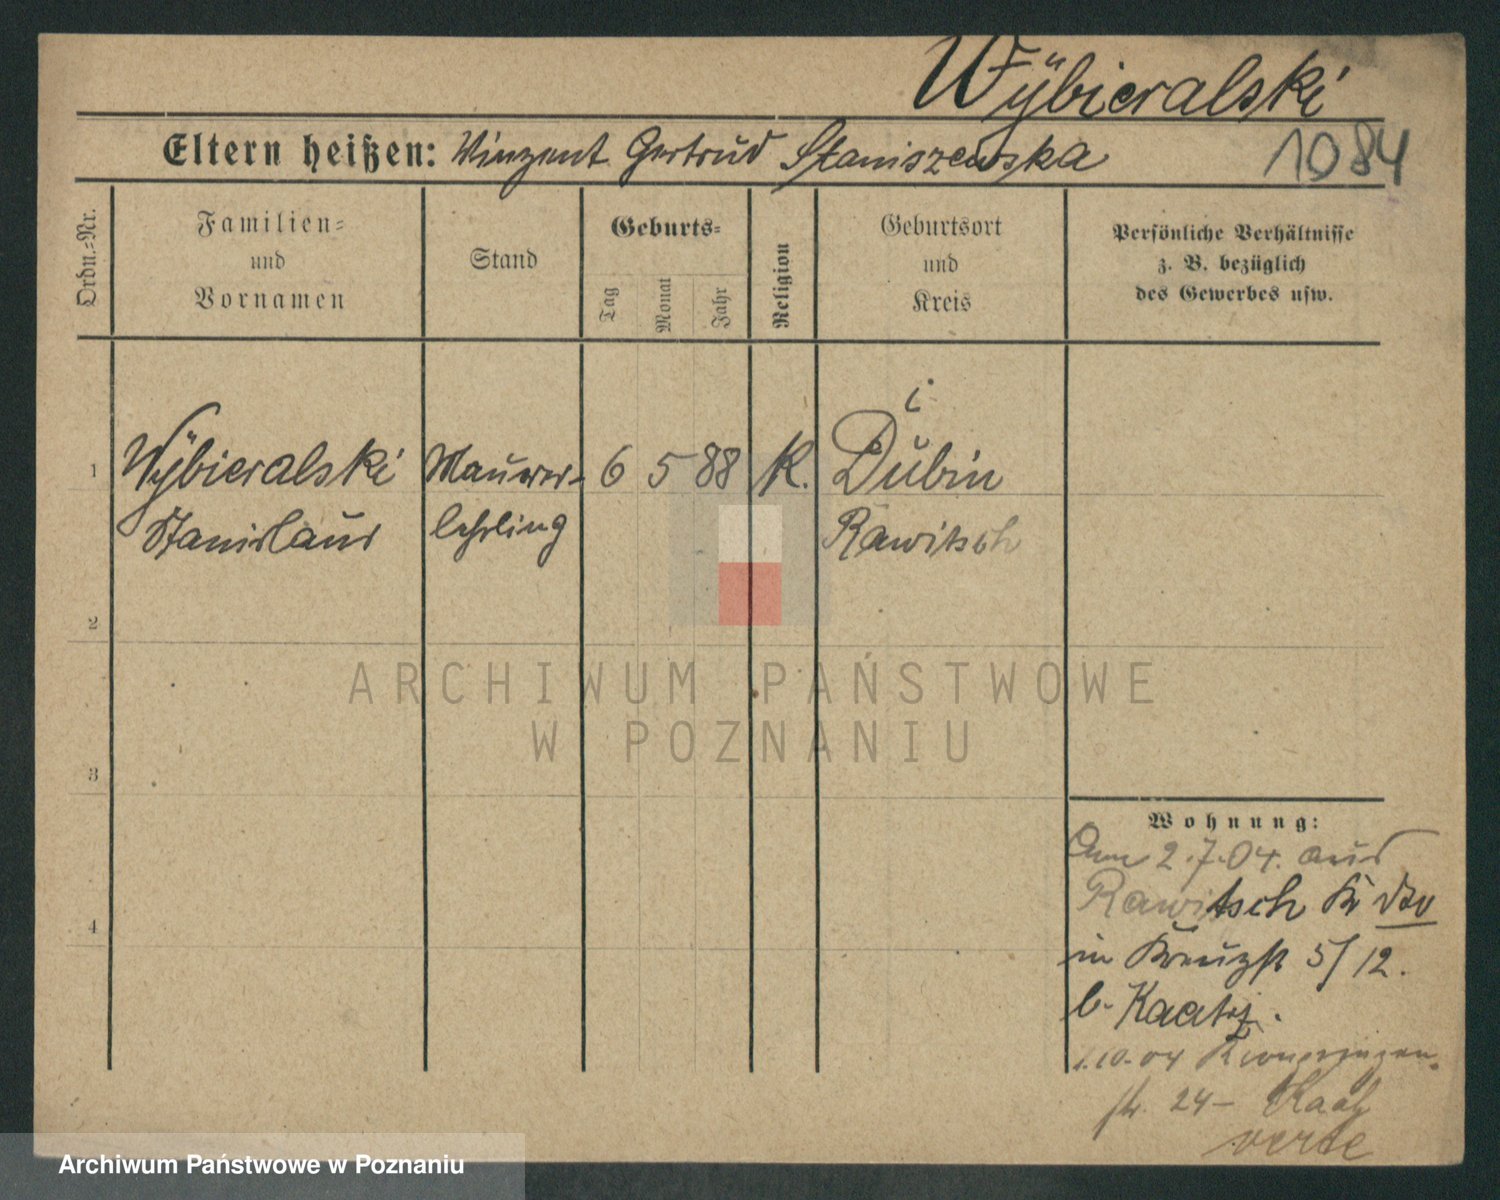 Wÿbieralski
Eltern heißen: Winzent Gertrud Staniszewska
1084
Ordn.=Nr.
Familien=
und
Vornamen
Stand
Geburts=
Tag
Monat
Jahr
Religion
Geburtsort
und
Kreis
Persönliche Verhältnisse
z. B. bezüglich
des Gewerbes usw.
1
Wÿbieralski
Stanislaus
Maurer-
lehrling
6 5 88
K.
i
Dubin
Rawitsch
2
ARCHIWUM PAŃSTWOWE
W POZNANIU
3
4
Wohnung:
Am 2.7.04. aus
Rawitsch Kr dto
in Kreuzstr 5/12.
b.
1.10.04 Kronprinzen-
str. 24 –
verte
Archiwum Państwowe w Poznaniu